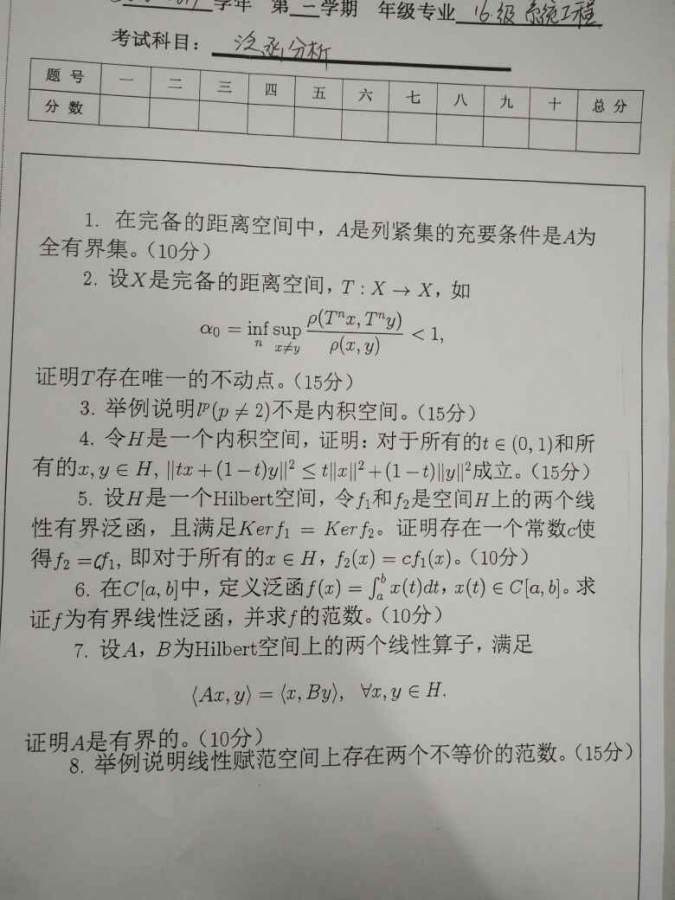 学年 第二学期 年级专业 16级 系统工程
考试科目: 泛函分析
题 号 一 二 三 四 五 六 七 八 九 十 总 分
分 数
1. 在完备的距离空间中, A是列紧集的充要条件是A为
全有界集。(10分)
2. 设X是完备的距离空间, T : X → X, 如
α₀ = inf_n sup_{x≠y} ρ(Tⁿx, Tⁿy) / ρ(x, y) < 1,
证明T存在唯一的不动点。(15分)
3. 举例说明lᵖ(p ≠ 2)不是内积空间。(15分)
4. 令H是一个内积空间, 证明: 对于所有的t ∈ (0, 1)和所
有的x, y ∈ H, ‖tx + (1 − t)y‖² ≤ t‖x‖² + (1 − t)‖y‖²成立。(15分)
5. 设H是一个Hilbert空间, 令f₁和f₂是空间H上的两个线
性有界泛函, 且满足Kerf₁ = Kerf₂。证明存在一个常数c使
得f₂ = cf₁, 即对于所有的x ∈ H, f₂(x) = cf₁(x)。(10分)
6. 在C[a, b]中, 定义泛函f(x) = ∫ₐᵇ x(t)dt, x(t) ∈ C[a, b]。求
证f为有界线性泛函, 并求f的范数。(10分)
7. 设A, B为Hilbert空间上的两个线性算子, 满足
⟨Ax, y⟩ = ⟨x, By⟩, ∀x, y ∈ H.
证明A是有界的。(10分)
8. 举例说明线性赋范空间上存在两个不等价的范数。(15分)